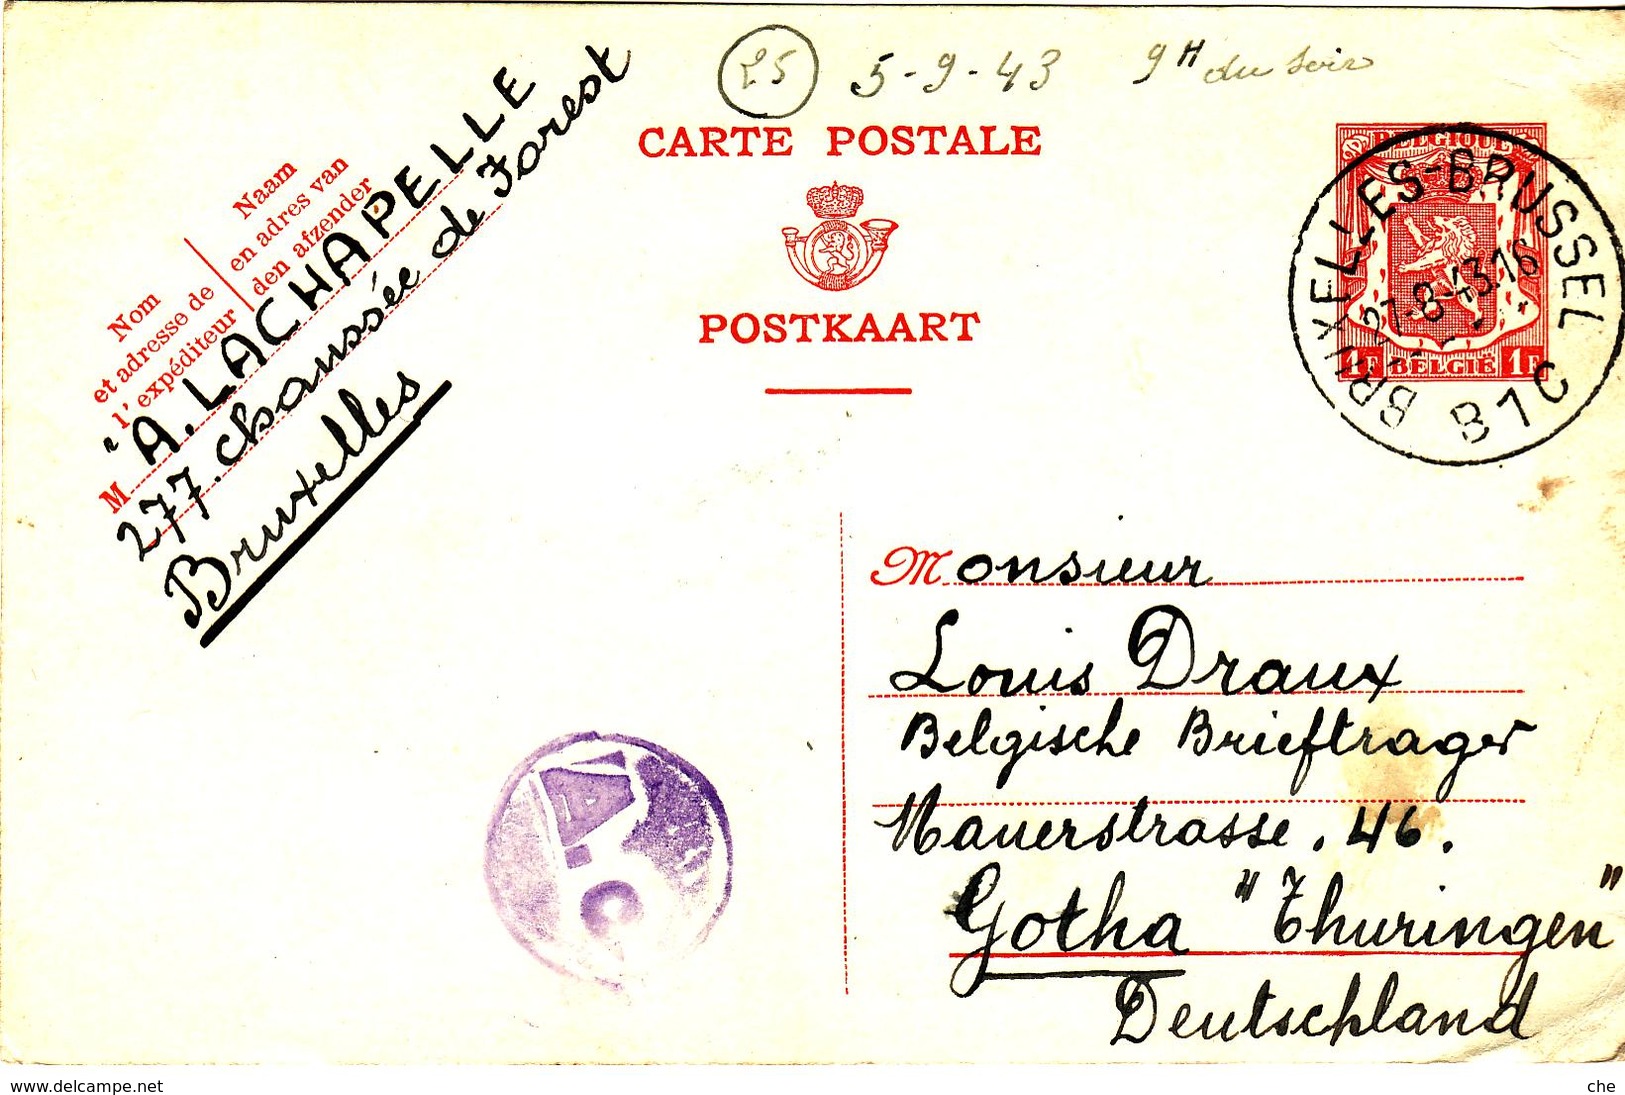 25 5-9-43 9H du soir
CARTE POSTALE
POSTKAART
Naam
en adres van
den afzender
Nom
et adresse de
l'expéditeur
M "A. LACHAPELLE
277. chaussée de Forest
Bruxelles
BELGIQUE
1F BELGIË 1F
BRUXELLES-BRUSSEL
27-8-43.16
B1C
Monsieur
Louis Draux
Belgische Brieftrager
Mauerstrasse. 46.
Gotha "Thuringen"
Deutschland
A
C
www.delcampe.net
che